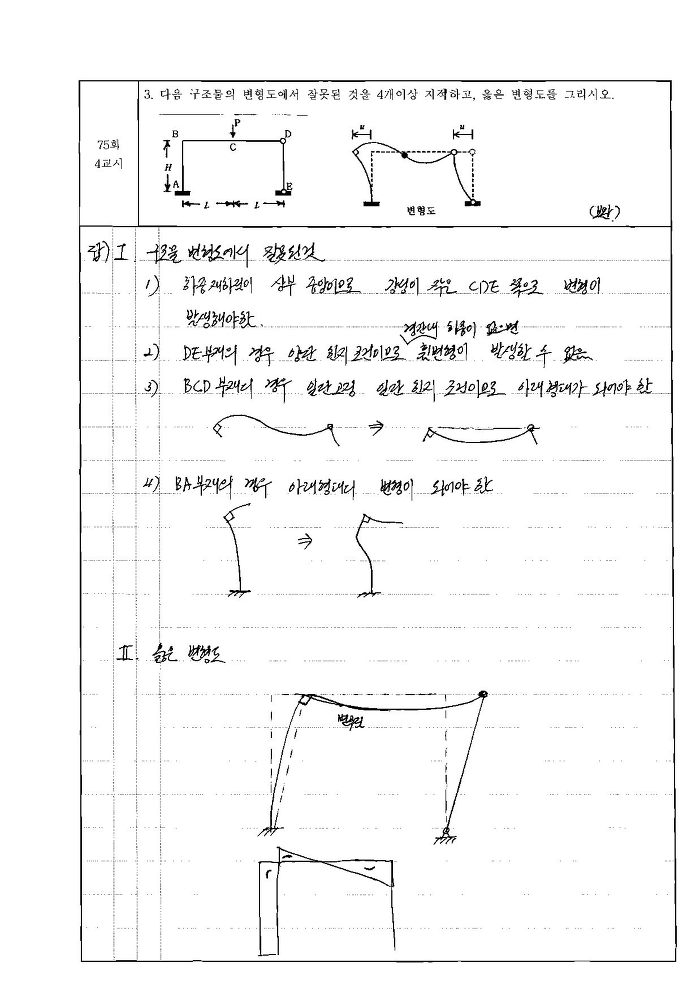 75회
4교시
3. 다음 구조물의 변형도에서 잘못된 것을 4개이상 지적하고, 옳은 변형도를 그리시오.
P
B
D
C
H
A
E
L
L
u
u
변형도
답) I 구조물 변형도에서 잘못된것
1) 하중재하위치 상부 중앙이므로 강성이 작은 CDE 쪽으로 변형이
발생해야함.
경간내 하중이 없으면
2) DE부재의 경우 양단 힌지조건이므로 휨변형이 발생할 수 없음
3) BCD부재의 경우 일단고정 일단 힌지 조건이므로 아래형태가 되어야 함
⇒
4) BA부재의 경우 아래형태의 변형이 되어야 함
⇒
II. 옳은 변형도